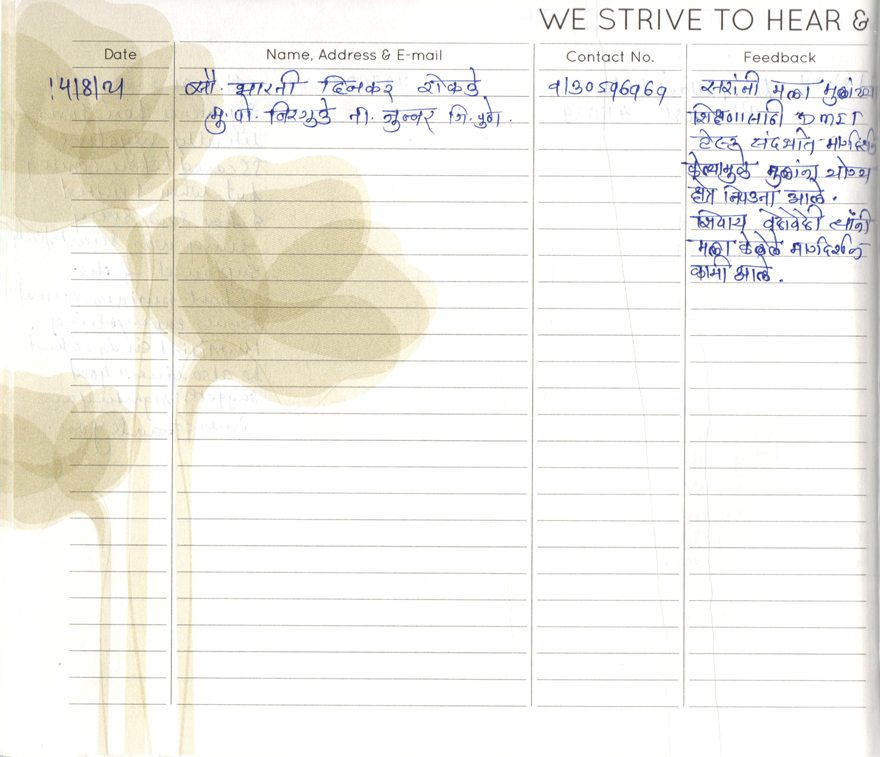 WE STRIVE TO HEAR &
Date Name, Address & E-mail Contact No. Feedback
14/8/21 सौ. भारती दिनकर शेकडे 9130596969 सरांनी मला मुलांच्या
मु. पो. निरगुडे ता. जुन्नर जि. पुणे. शिक्षणासाठी DMIT
टेस्ट संदर्भात मार्गदर्शन
केल्यामुळे मुलांना योग्य
क्षेत्र निवडता आले.
शिवाय वेळोवेळी त्यांनी
मला केलेले मार्गदर्शन
कामी आले.